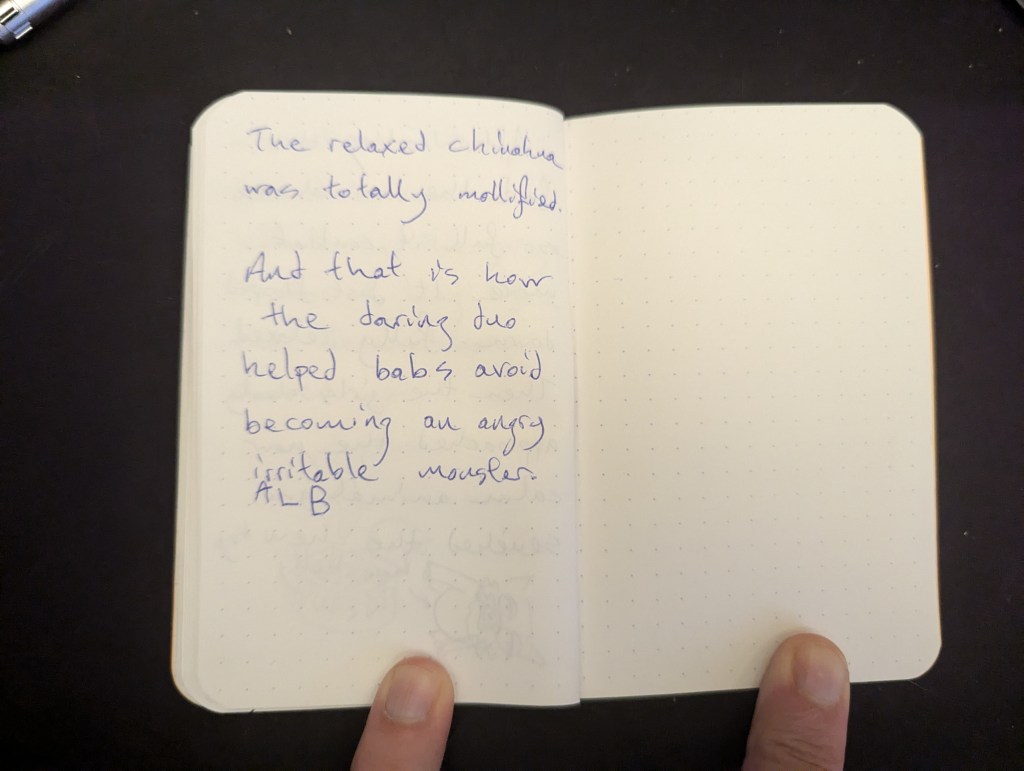 The relaxed chihuahua
was totally mollified.
And that is how
the daring duo
helped babs avoid
becoming an angry
irritable monster.
ALB